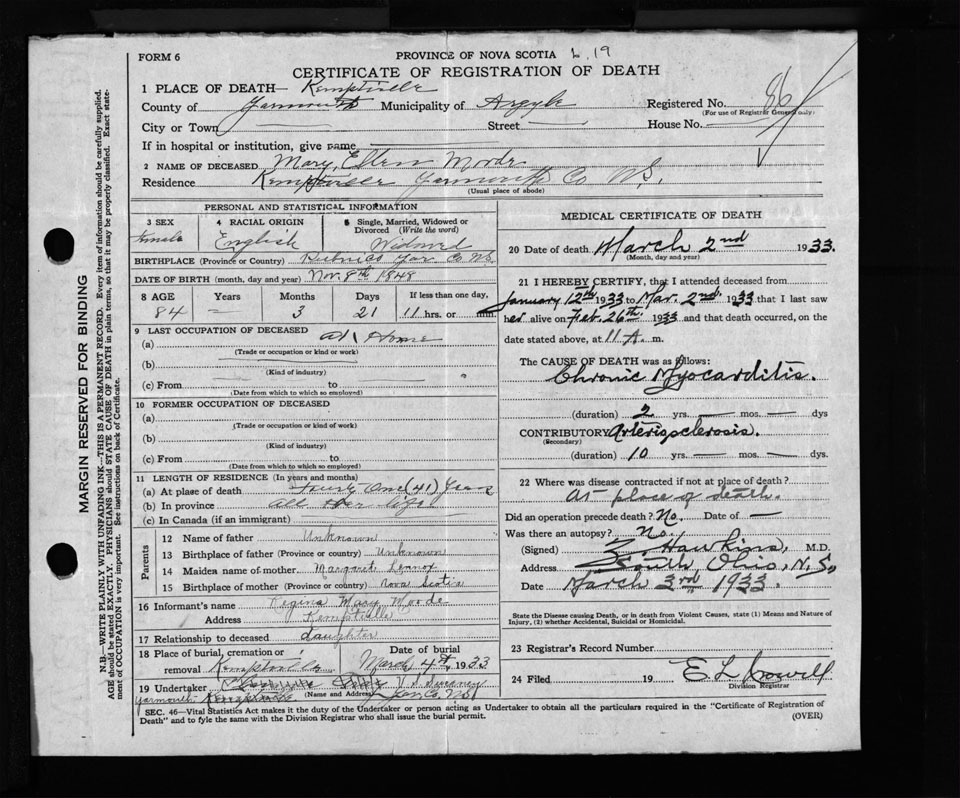 FORM 6
PROVINCE OF NOVA SCOTIA L. 19
CERTIFICATE OF REGISTRATION OF DEATH
1 PLACE OF DEATH— Kemptville
County of Yarmouth Municipality of Argyle Registered No. 86
(For use of Registrar General only)
City or Town Street House No.
If in hospital or institution, give name
2 NAME OF DECEASED Mary, Ellen Moode
Residence Kemptville Yarmouth Co N.S.
(Usual place of abode)
PERSONAL AND STATISTICAL INFORMATION
3 SEX
female
4 RACIAL ORIGIN
English
5 Single, Married, Widowed or Divorced (Write the word)
Widowed
BIRTHPLACE (Province or Country) Pubnico Yar. Co NS.
DATE OF BIRTH (month, day and year) Nov. 8th 1848
8 AGE Years Months Days If less than one day,
84 — 3 21 11 hrs. or min
9 LAST OCCUPATION OF DECEASED
(a) At Home
(Trade or occupation or kind or work)
(b)
(Kind of industry)
(c) From to
(Date from which to which so employed)
10 FORMER OCCUPATION OF DECEASED
(a)
(Trade or occupation or kind of work)
(b)
(Kind of industry)
(c) From to
(Date from which to which so employed)
11 LENGTH OF RESIDENCE (In years and months)
(a) At place of death One (41) Years
(b) In province all Her life
(c) In Canada (if an immigrant)
Parents
12 Name of father Unknown
13 Birthplace of father (Province or Country) Unknown
14 Maiden name of mother Margaret Lennox
15 Birthplace of mother (Province or Country) Nova Scotia
16 Informant's name Regina Mary Moode
Address Kemptville
17 Relationship to deceased daughter
18 Place of burial, cremation or removal Kemptville
Date of burial
March 4th, 1933
19 Undertaker V S Sweeney
(Name and Address)
Yarmouth Yar Co NS
MEDICAL CERTIFICATE OF DEATH
20 Date of death March 2nd 1933.
(Month, day and year)
21 I HEREBY CERTIFY, that I attended deceased from
January 12th 1933 to Mar. 2nd. 1933 that I last saw
her alive on Feb. 26th. 1933 and that death occurred, on the
date stated above, at 11 A. m.
The CAUSE OF DEATH was as follows:
Chronic Myocarditis.
(duration) 2 yrs. — mos. — dys
CONTRIBUTORY Arteriosclerosis.
(Secondary)
(duration) 10 yrs. — mos. — dys.
22 Where was disease contracted if not at place of death?
At place of death.
Did an operation precede death? No. Date of —
Was there an autopsy? No.
(Signed) Hawkins, M.D.
Address South, Ohio, N.S.,
Date March 3rd 1933.
State the Disease causing Death, or in death from Violent Causes, state (1) Means and Nature of
Injury, (2) whether Accidental, Suicidal or Homicidal.
23 Registrar's Record Number
24 Filed 19 E L Crowell
Division Registrar
SEC. 46—Vital Statistics Act makes it the duty of the Undertaker or person acting as Undertaker to obtain all the particulars required in the "Certificate of Registration of
Death" and to fyle the same with the Division Registrar who shall issue the burial permit.
(OVER)
MARGIN RESERVED FOR BINDING
N.B.—WRITE PLAINLY WITH UNFADING INK—THIS IS A PERMANENT RECORD. Every item of information should be carefully supplied.
AGE should be stated EXACTLY. PHYSICIANS should STATE CAUSE OF DEATH in plain terms, so that it may be properly classified. Exact state-
ment of OCCUPATION is very important. See instructions on back of Certificate.